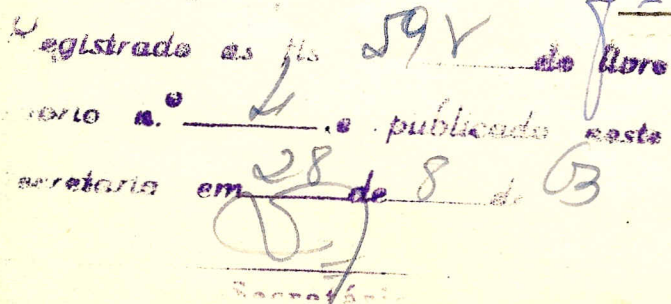 Registrado as fls 59v do livro
torio n.º 4 e publicado nesta
secretaria em 28 de 8 de 63
Secretário